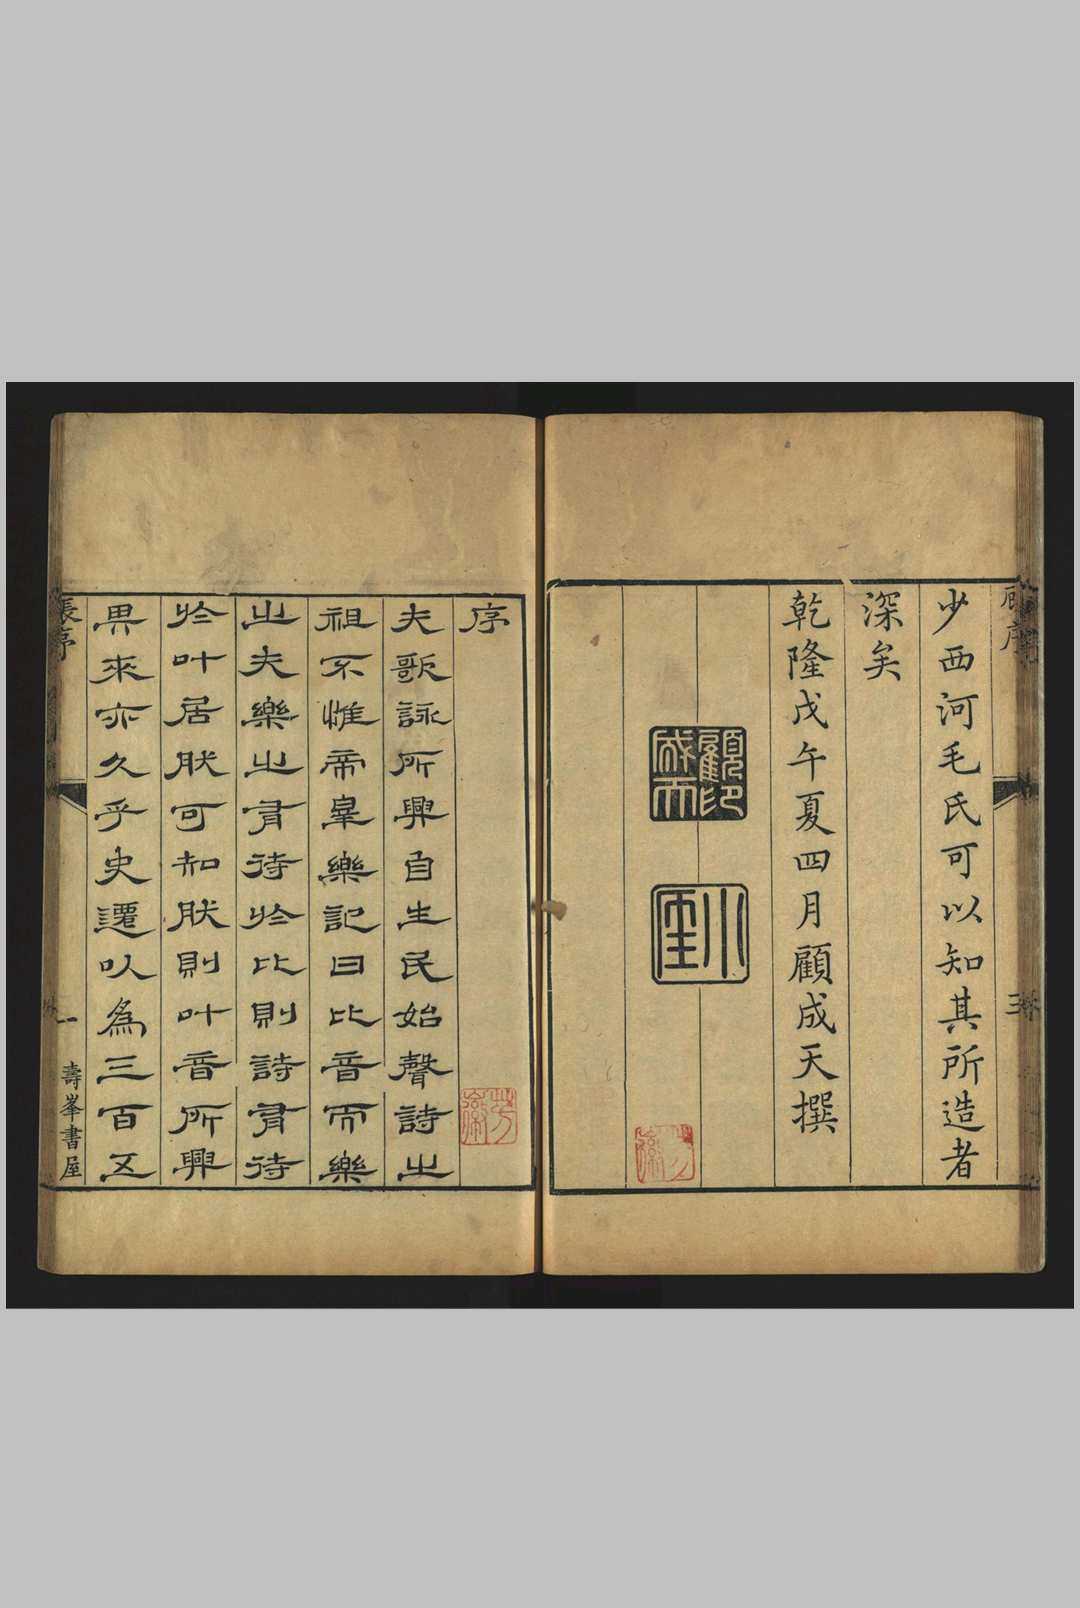 顧序
三
少西河毛氏可以知其所造者
深矣
乾隆戊午夏四月顧成天撰
顧印成天
小厓
序
夫歌詠所興自生民始聲詩之
祖不惟帝皋樂記曰比音而樂
之夫樂之有待於比則詩有待
於叶居肰可知肰則叶音所興
其來亦久乎史遷以為三百五
張序
一
壽峯書屋